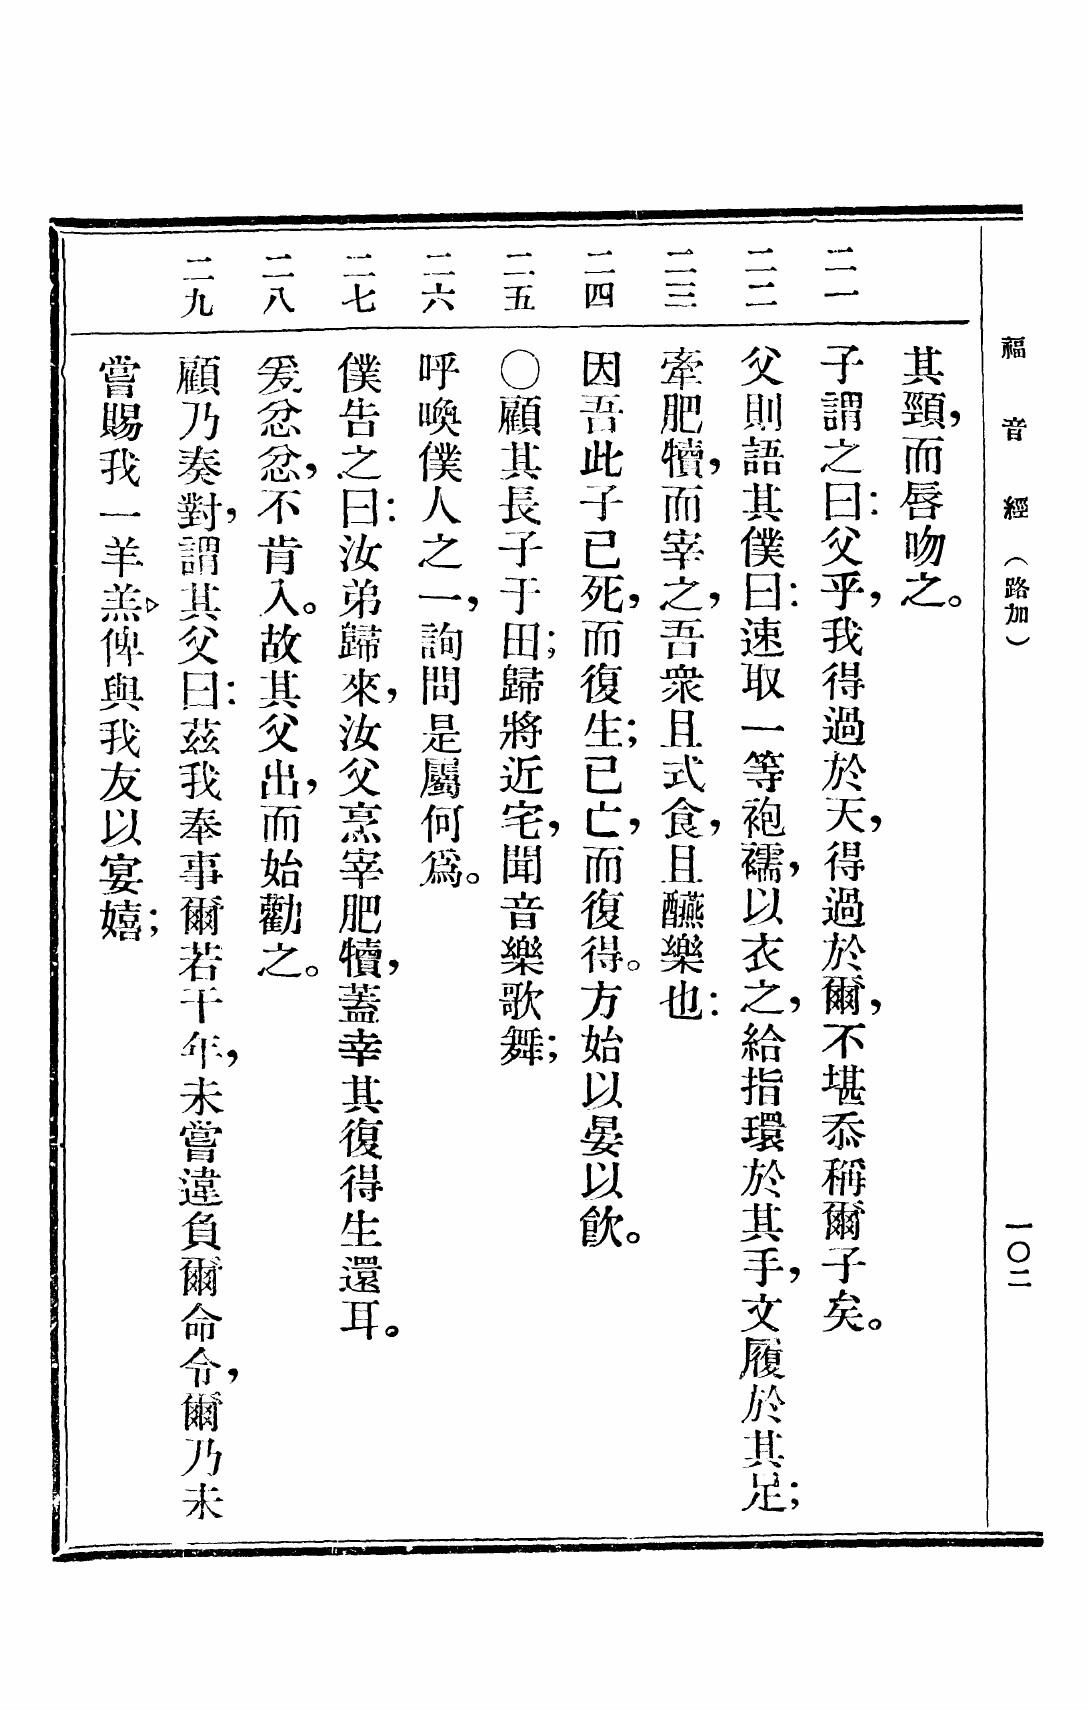 福音經（路加） 一〇二
其頸，而唇吻之。
二一 子謂之曰：父乎，我得過於天，得過於爾，不堪忝稱爾子矣。
二二 父則語其僕曰：速取一等袍襦，以衣之，給指環於其手，文履於其足；
二三 牽肥犢，而宰之，吾衆且式食，且醼樂也：
二四 因吾此子已死，而復生；已亡，而復得。方始以晏以飮。
二五 〇顧其長子于田；歸將近宅，聞音樂歌舞；
二六 呼喚僕人之一，詢問是屬何爲。
二七 僕告之曰：汝弟歸來，汝父烹宰肥犢，蓋幸其復得生還耳。
二八 爰忿忿，不肯入。故其父出，而始勸之。
二九 顧乃奏對，謂其父曰：茲我奉事爾若干年，未嘗違負爾命令，爾乃未
嘗賜我一羊羔，俾與我友以宴嬉；